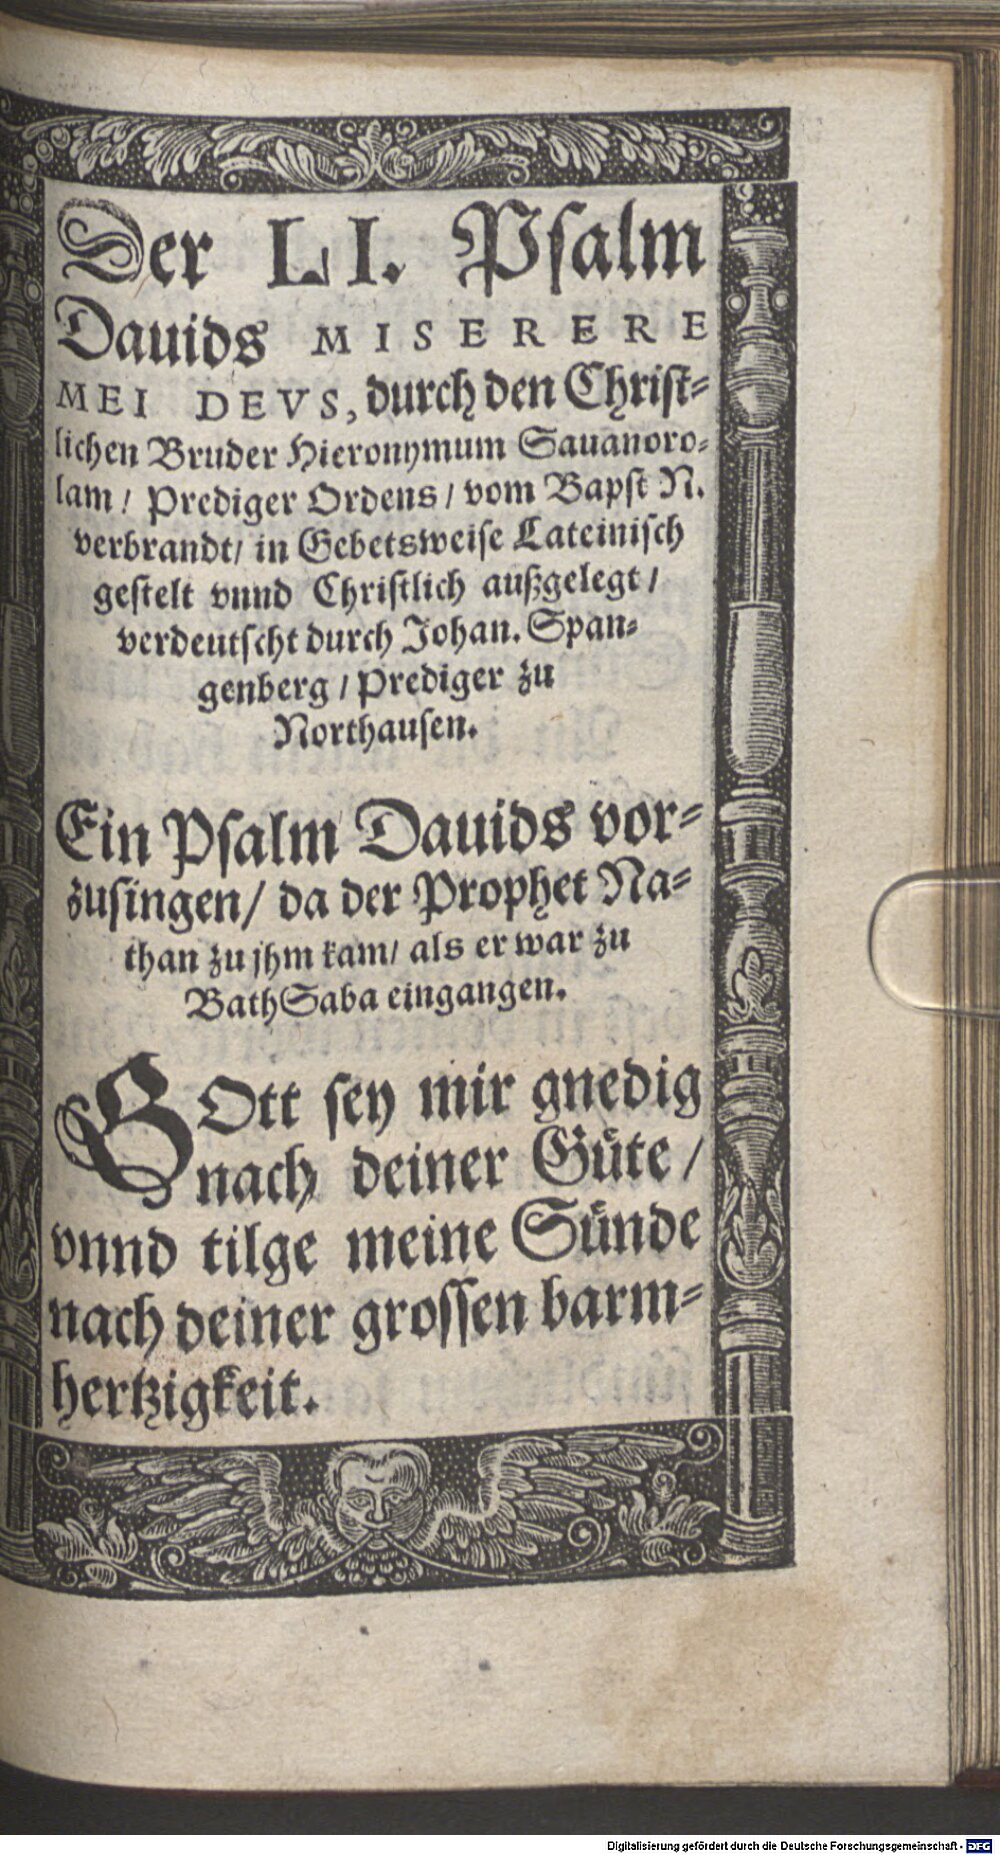 Der LI. Pſalm
Dauids MISERERE
MEI DEVS, durch den Chriſt⸗
lichen Bruder Hieronymum Sauanoro⸗
lam / Prediger Ordens / vom Bapſt N.
verbrandt / in Gebetsweiſe Lateiniſch
geſtelt vnnd Chriſtlich außgelegt /
verdeutſcht durch Johan. Span⸗
genberg / Prediger zu
Northauſen.
Ein Pſalm Dauids vor⸗
zuſingen / da der Prophet Na⸗
than zu jhm kam / als er war zu
BathSaba eingangen.
GOtt ſey mir gnedig
nach deiner Guͤte /
vnnd tilge meine Suͤnde
nach deiner groſſen barm⸗
hertzigkeit.
Digitalisierung gefördert durch die Deutsche Forschungsgemeinschaft - DFG